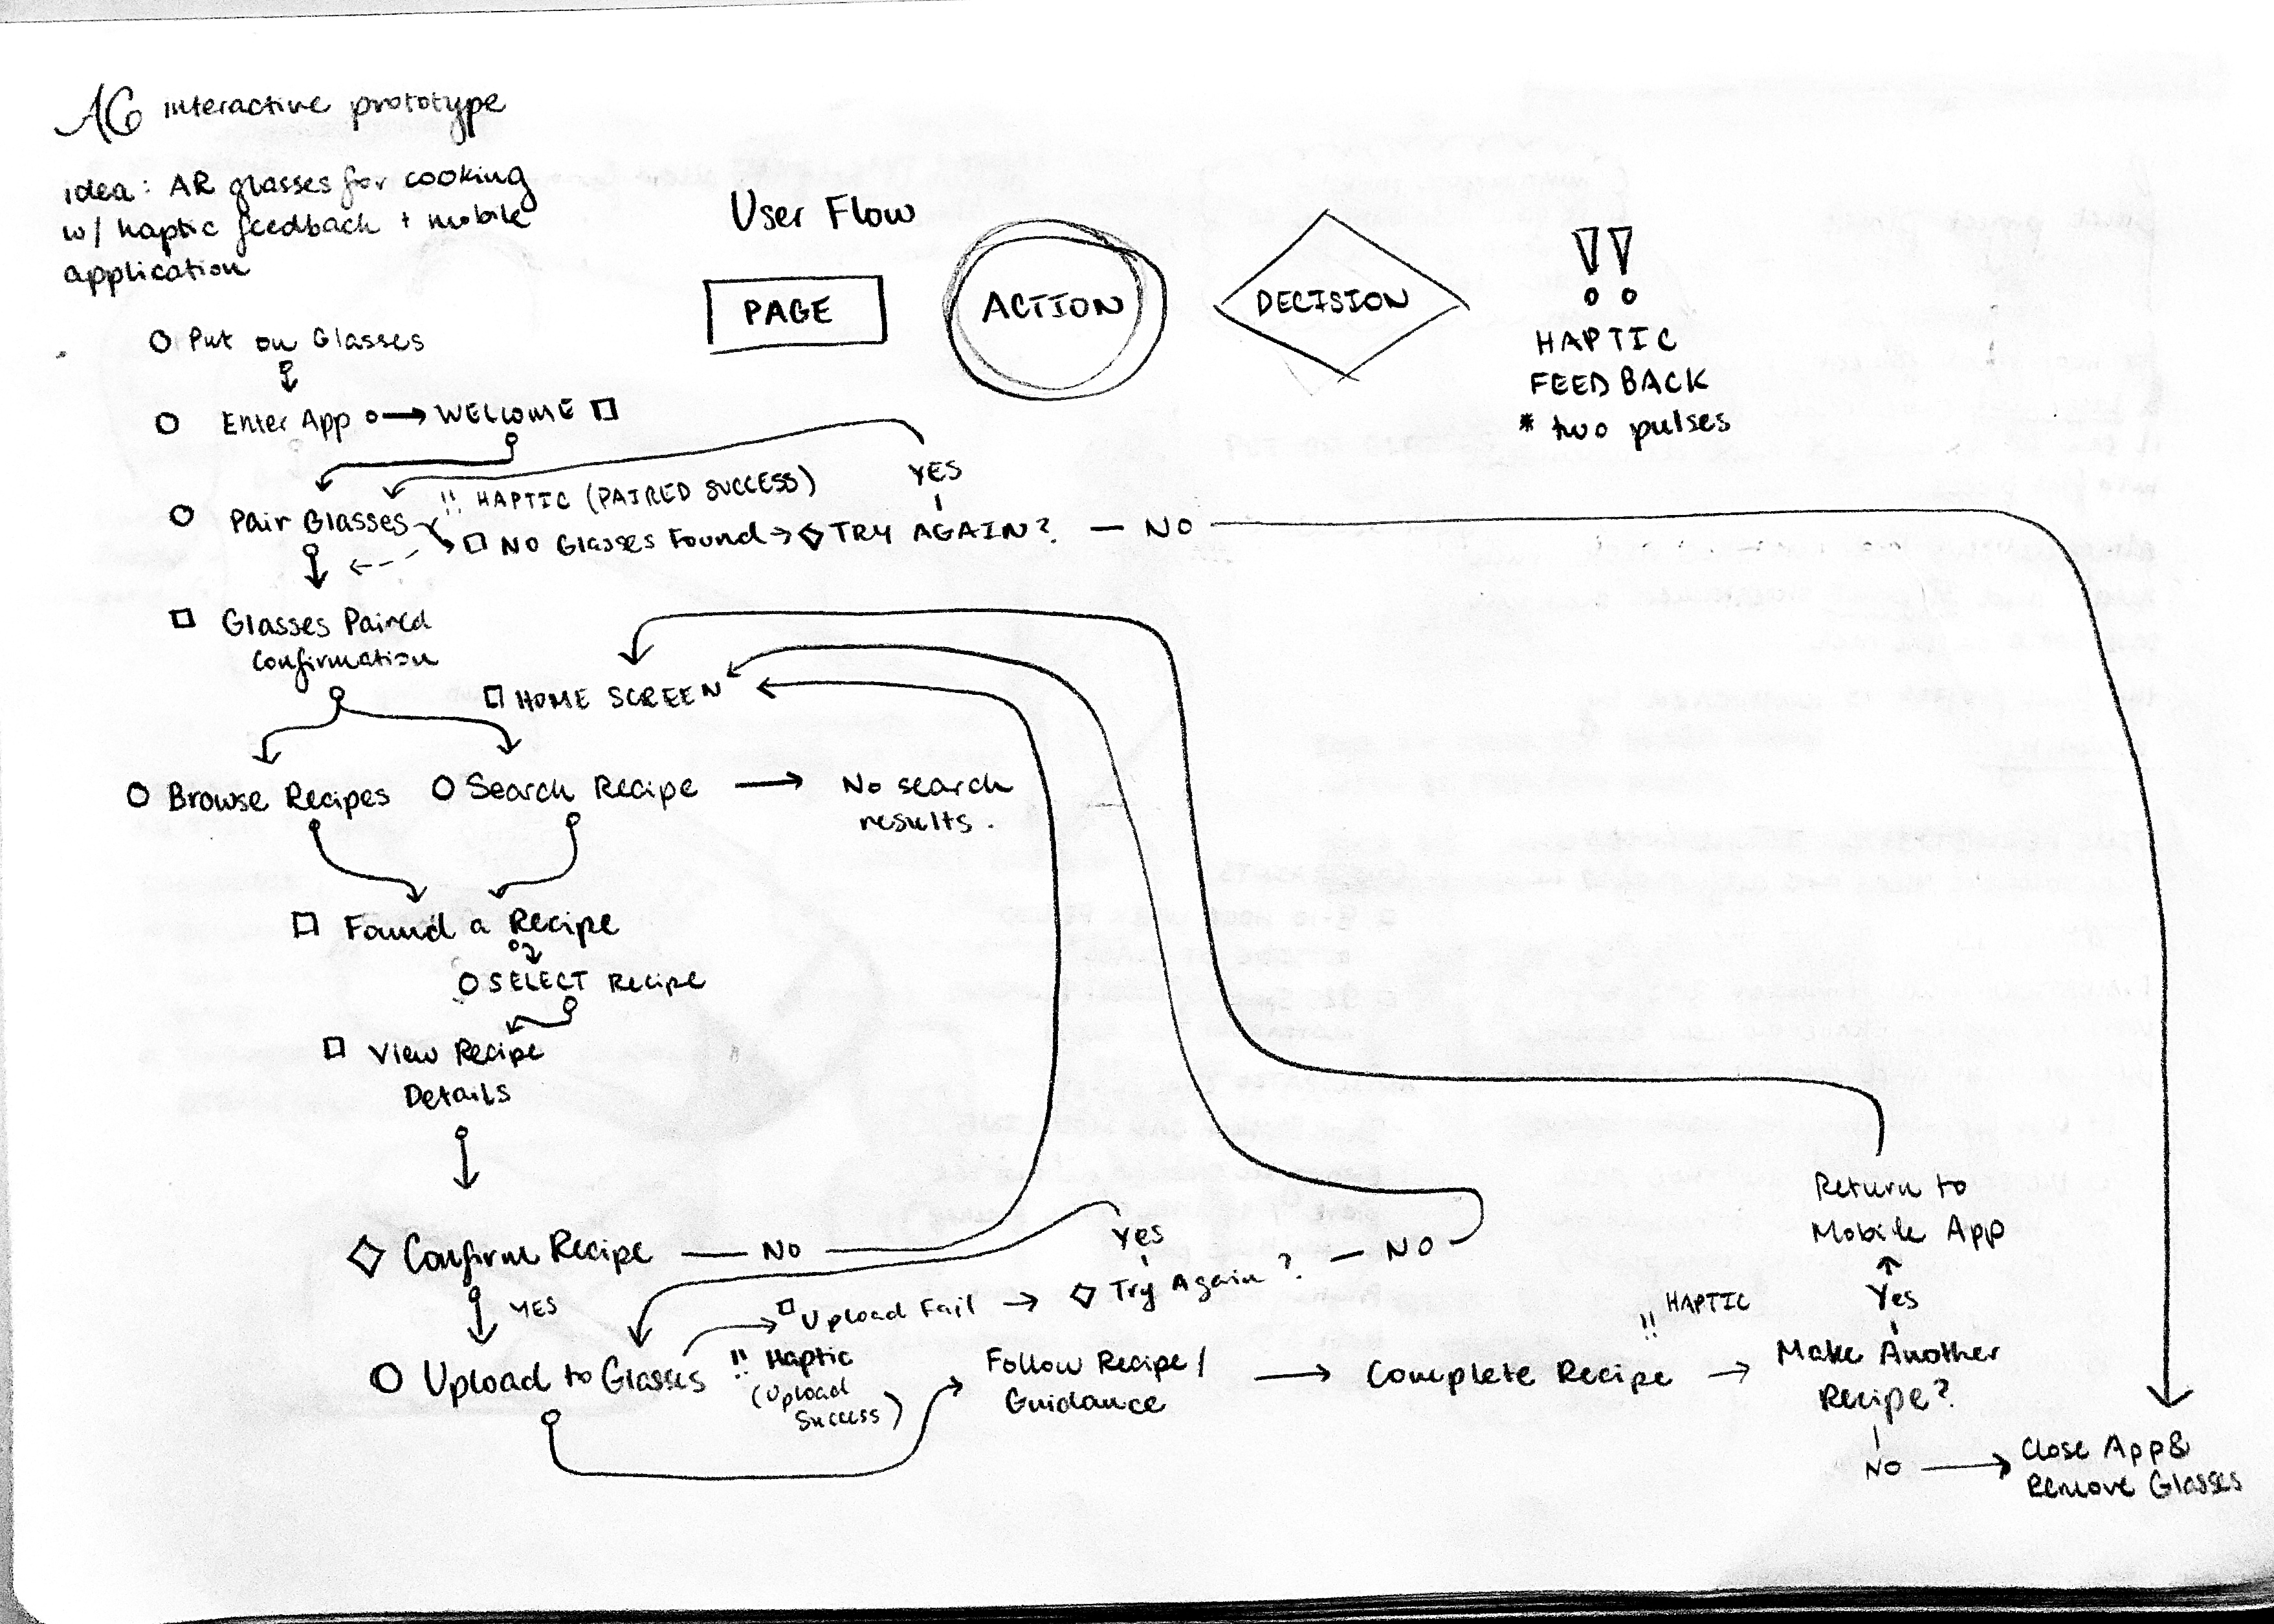 AG interactive prototype
idea: AR glasses for cooking
w/ haptic feedback + mobile
application
User Flow
PAGE
ACTION
DECISION
!!
HAPTIC
FEEDBACK
* two pulses
Put on Glasses
Enter App → WELCOME
Pair Glasses
!! HAPTIC (PAIRED SUCCESS)
YES
No Glasses Found → TRY AGAIN? — NO
Glasses Paired
Confirmation
HOME SCREEN
Browse Recipes
Search Recipe → No search
results.
Found a Recipe
SELECT Recipe
View Recipe
Details
Confirm Recipe — NO
YES
Upload to Glasses
Upload Fail → Try Again? — NO
Yes
!! Haptic
(Upload
Success)
Follow Recipe /
Guidance
→ Complete Recipe →
!! HAPTIC
Make Another
Recipe?
Yes
Return to
Mobile App
NO → Close App &
Remove Glasses